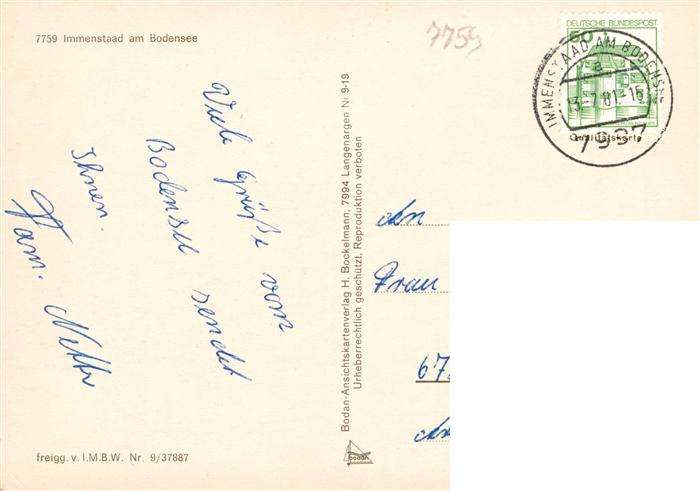 7759 Immenstaad am Bodensee
7759
DEUTSCHE BUNDESPOST
50
IMMENSTAAD AM BODENSEE
a
13.-7.81.-15
7997
Qualitätskarte
Viele Grüße vom
Bodensee sendet
Ihnen.
Fam.
Bodan-Ansichtskartenverlag H. Bockelmann, 7994 Langenargen Nr 9-19
Urheberrechtlich geschützt, Reproduktion verboten
An
Frau
67
bodan
freigg. v. I.M.B.W. Nr. 9/37887